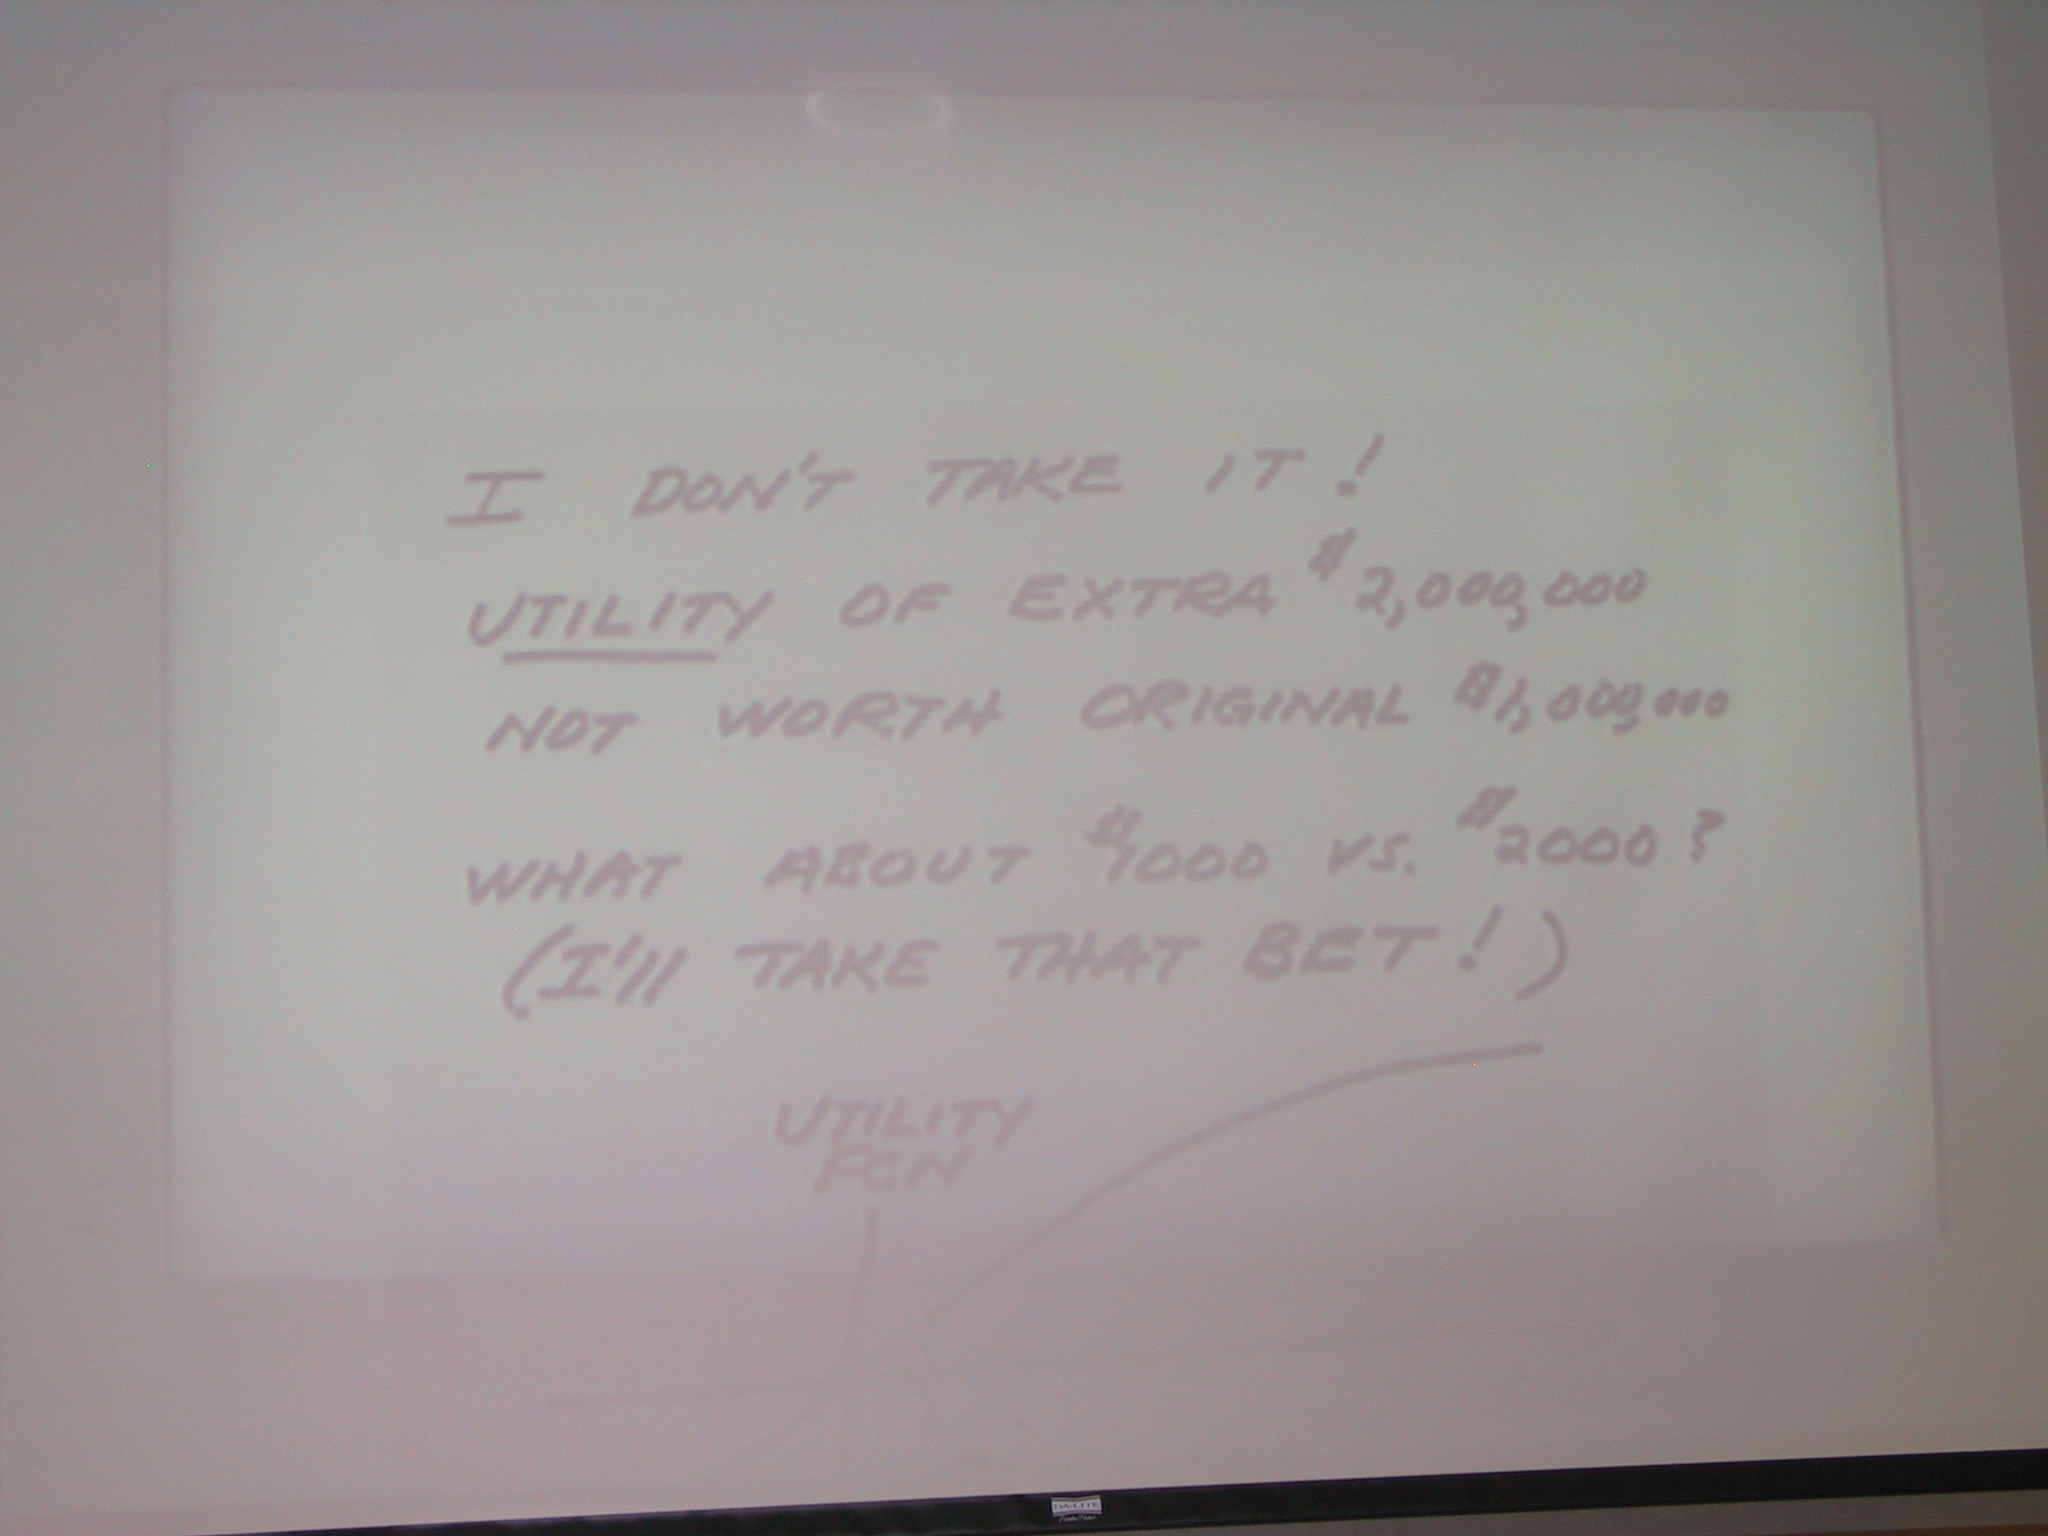 I DON'T TAKE IT!
UTILITY OF EXTRA $2,000,000
NOT WORTH ORIGINAL $1,000,000
WHAT ABOUT $1000 VS. $2000?
(I'll TAKE THAT BET!)
UTILITY
FCN
DA-LITE